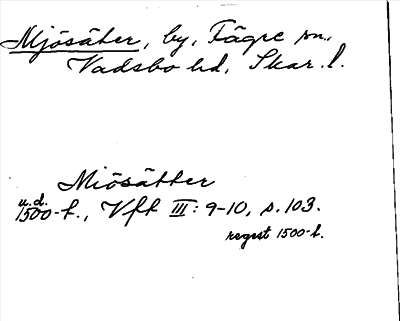 Mjösäter, by, Fägre sn.,
Vadsbo hd, Skar. l.
Miösätter
u.d.
1500-t., Vft III: 9-10, s. 103.
regest 1500-t.